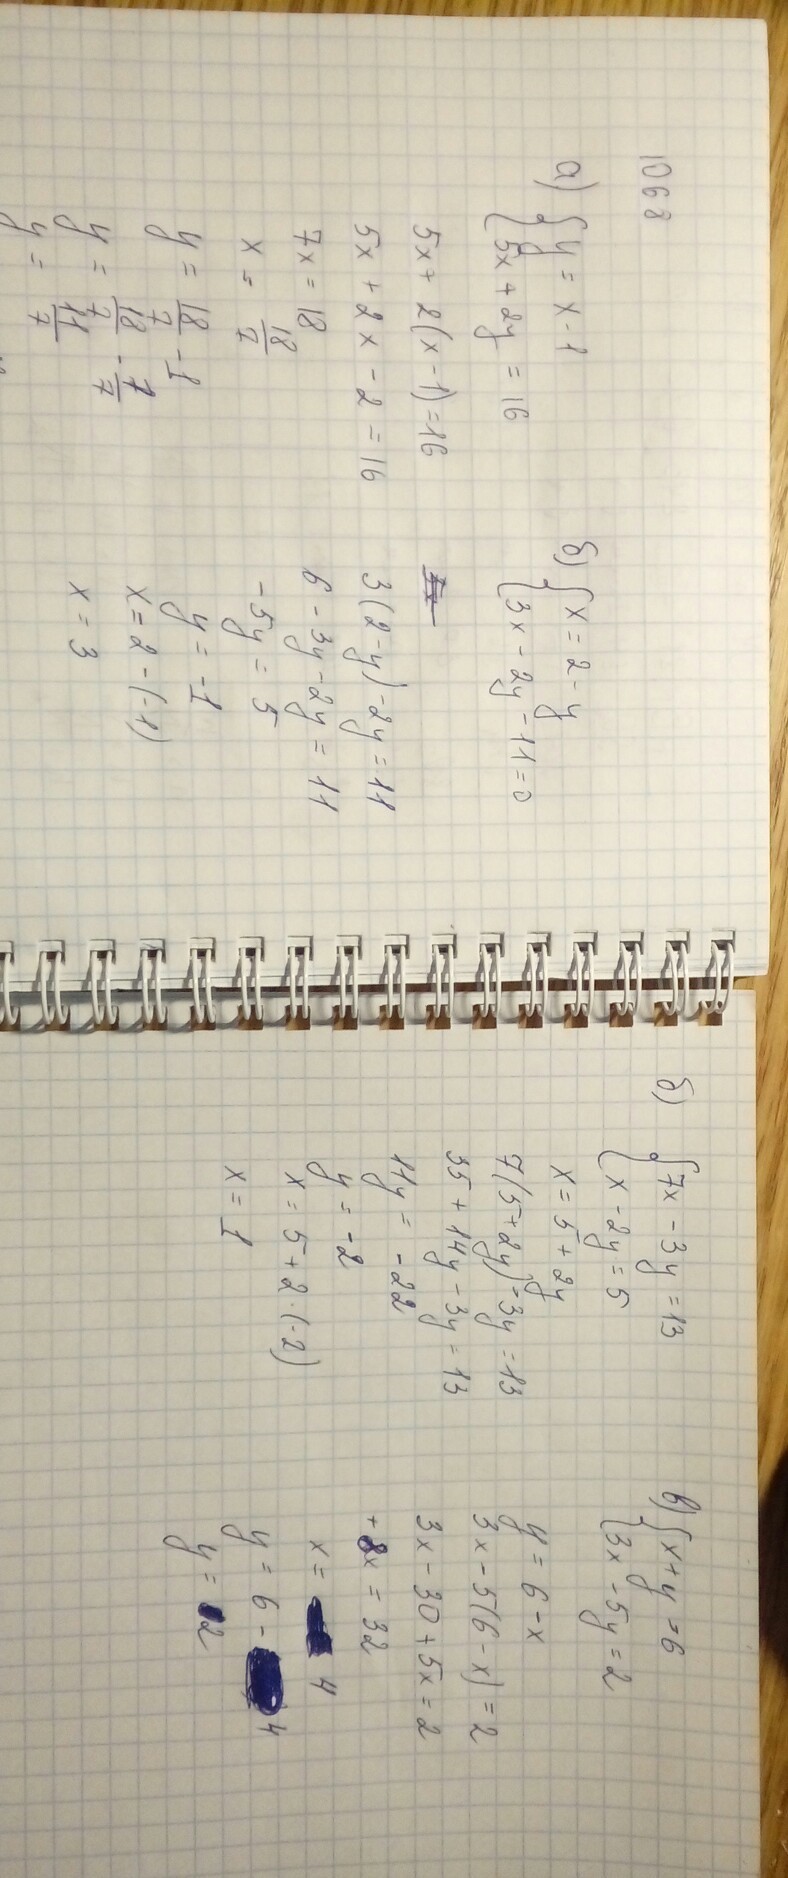 1068
а) { y = x - 1
5x + 2y = 16
5x + 2(x - 1) = 16
5x + 2x - 2 = 16
7x = 18
x = 18/7
y = 18/7 - 1
y = 18/7 - 7/7
y = 11/7
y =
б) { x = 2 - y
3x - 2y - 11 = 0
3(2 - y) - 2y = 11
6 - 3y - 2y = 11
-5y = 5
y = -1
x = 2 - (-1)
x = 3
б) { 7x - 3y = 13
x - 2y = 5
x = 5 + 2y
7(5 + 2y) - 3y = 13
35 + 14y - 3y = 13
11y = -22
y = -2
x = 5 + 2 · (-2)
x = 1
в) { x + y = 6
3x - 5y = 2
y = 6 - x
3x - 5(6 - x) = 2
3x - 30 + 5x = 2
+ 8x = 32
x = 4
y = 6 - 4
y = 2